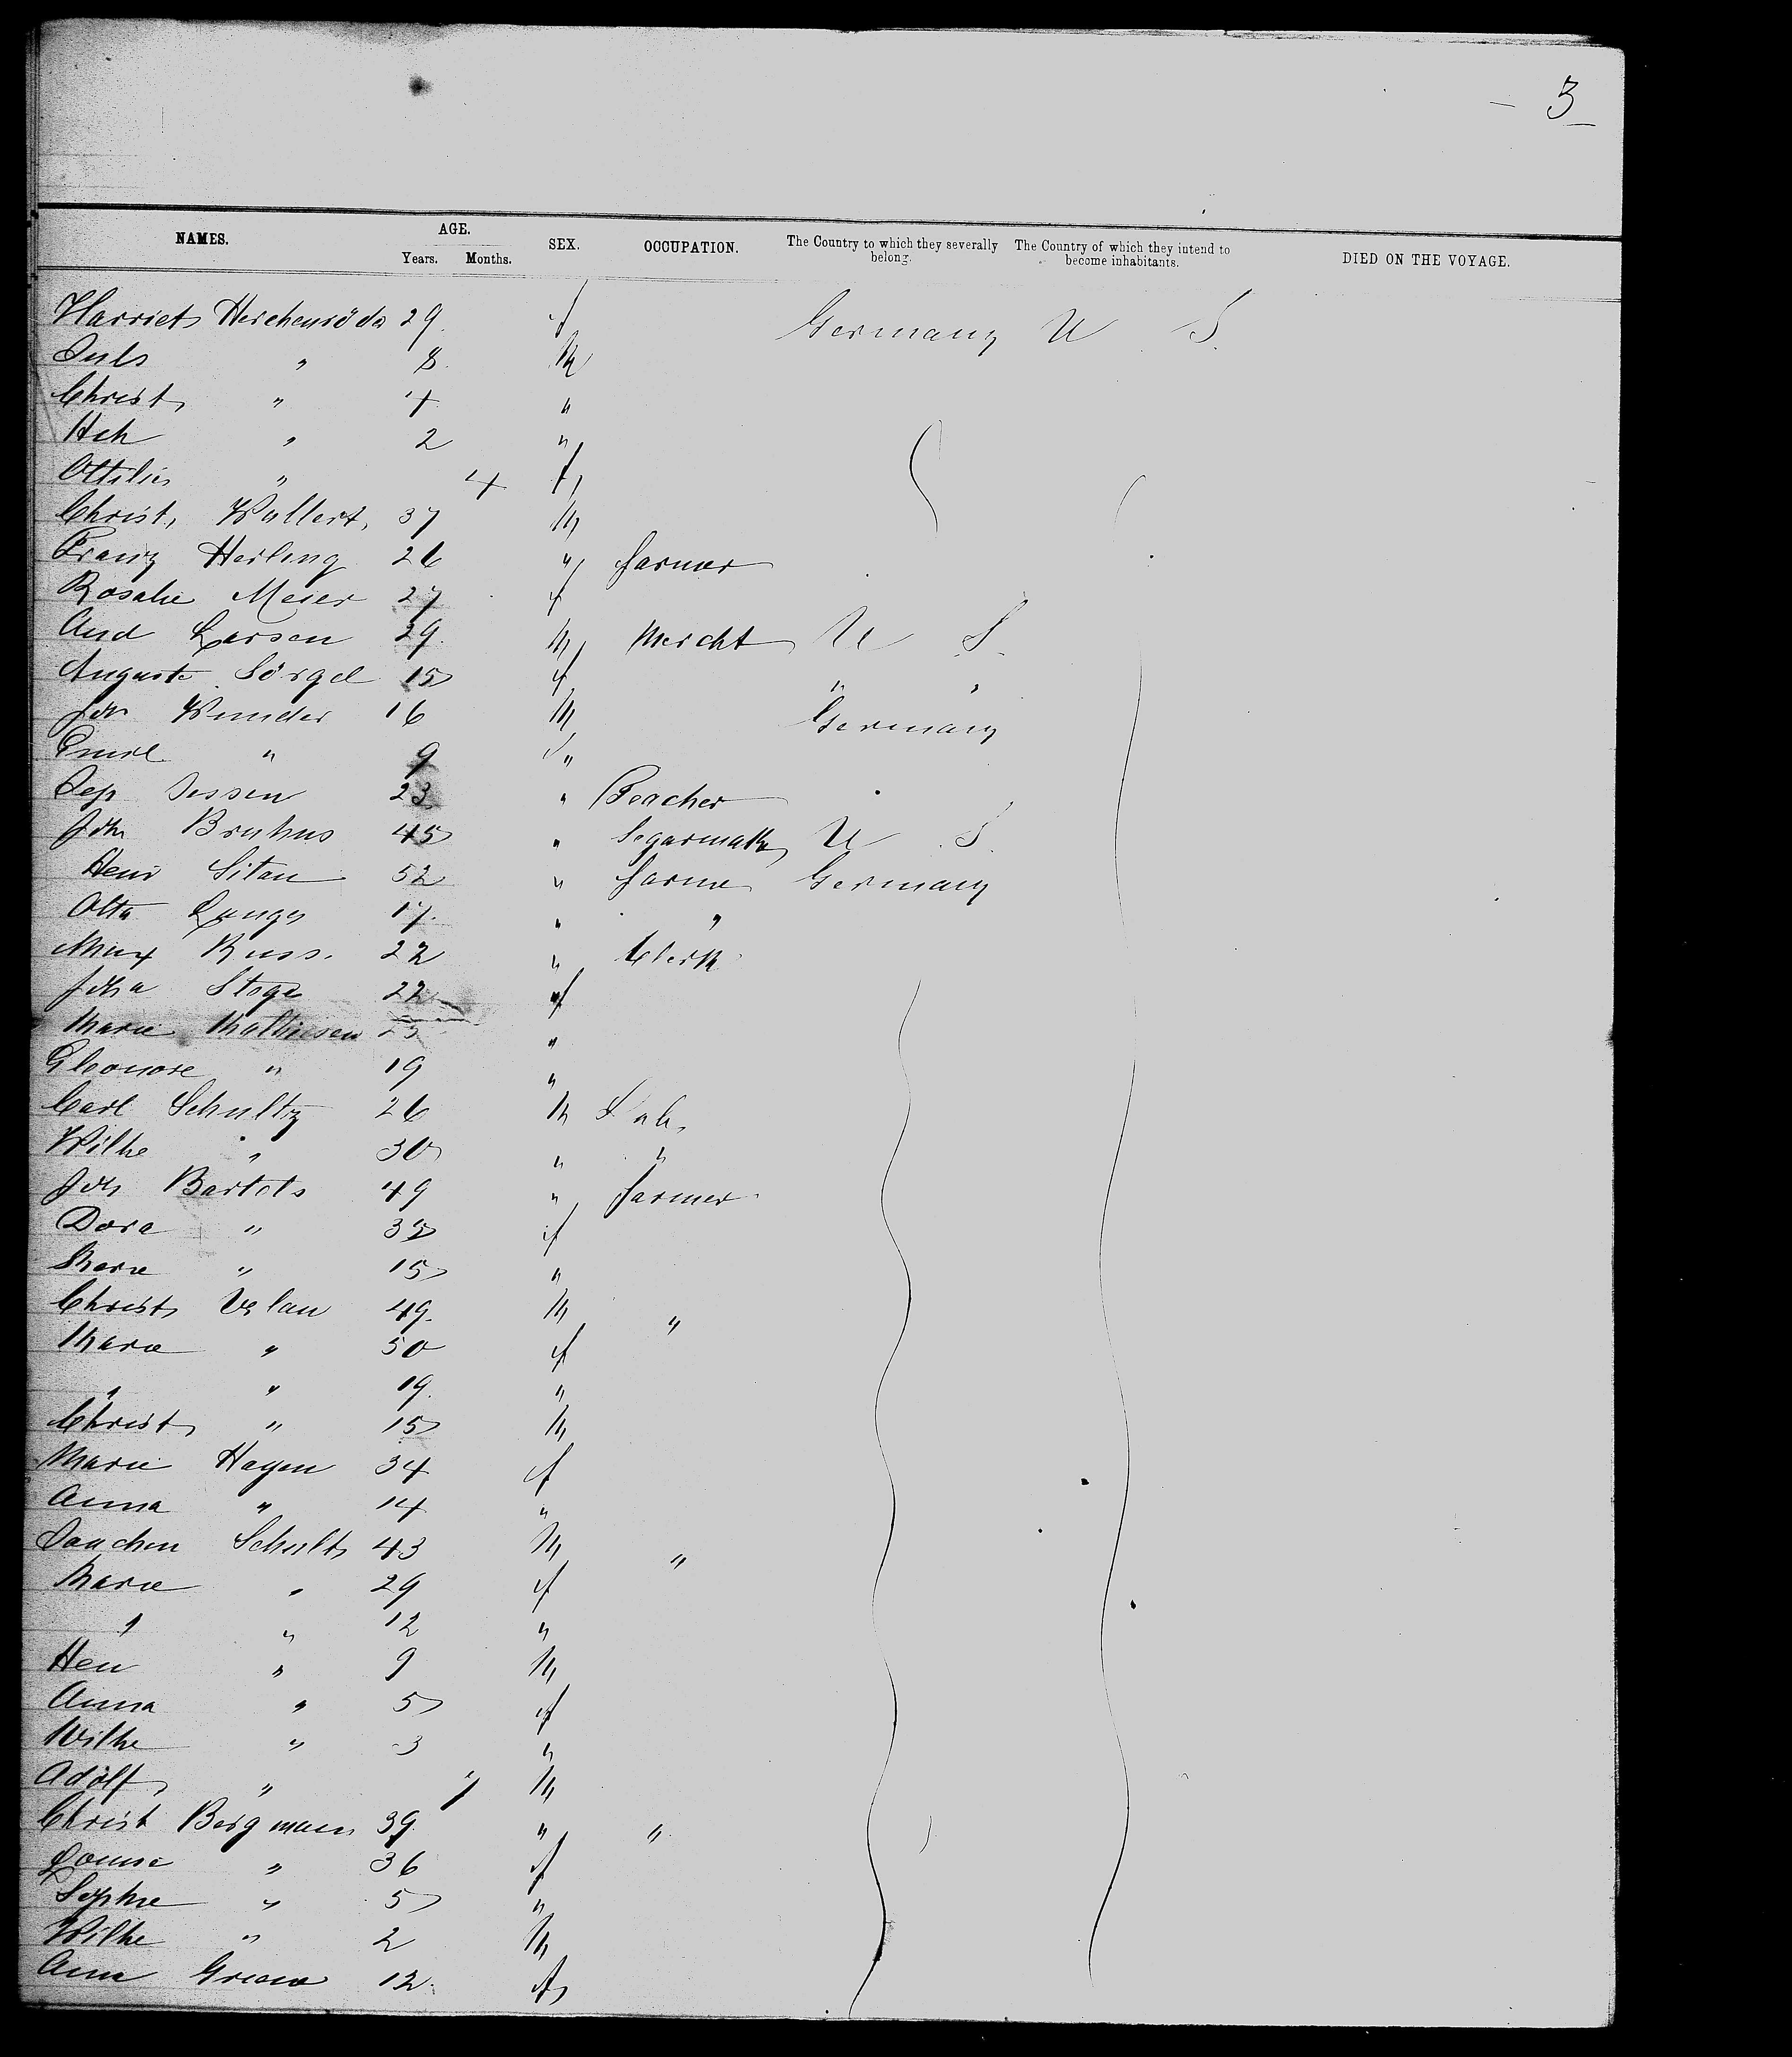 - 3 -
NAMES. AGE. Years. Months. SEX. OCCUPATION. The Country to which they severally belong. The Country of which they intend to become inhabitants. DIED ON THE VOYAGE.
Harriet Herchenröda 29 f Germany U S.
Juls " 8 M
Christ " 4 "
Hch " 2 "
Ottilie " 4 f
Christ. Wullert 37 M
Franz Herling 26 " farmer
Rosalie Meier 27 f
And Larsen 39 M Mercht U S.
Auguste Sörgel 15 f " "
Joh Wunder 16 M Germany
Emil " 9 "
Jep Jessen 23 " Teacher
Joh Bruhns 45 " Segarmak U S.
Henr Sitau 52 " farme Germany
Otto Lange 17 " "
Max Russ. 22 " Clerk
Joha Stege 22 f
Marie Mathiesen 25 "
Eleonore " 19 "
Carl Schultz 26 M Lab.
Wilhe " 30 " "
Joh Bartels 49 " farmer
Dora " 35 f
Marie " 15 "
Christ 49 M "
Marie " 50 f
" " 19 "
Christ " 15 M
Marie Hagen 34 f
Anna " 14 "
Joachen Schult 43 M "
Marie " 29 f
" " 12 "
Hen " 9 M
Anna " 5 f
Wilhe " 3 "
Adolf " M
Christ Bergmann 39 " "
Louise " 36 f
Sophie " 5 "
Wilhe " 2 M
Anna 12 f